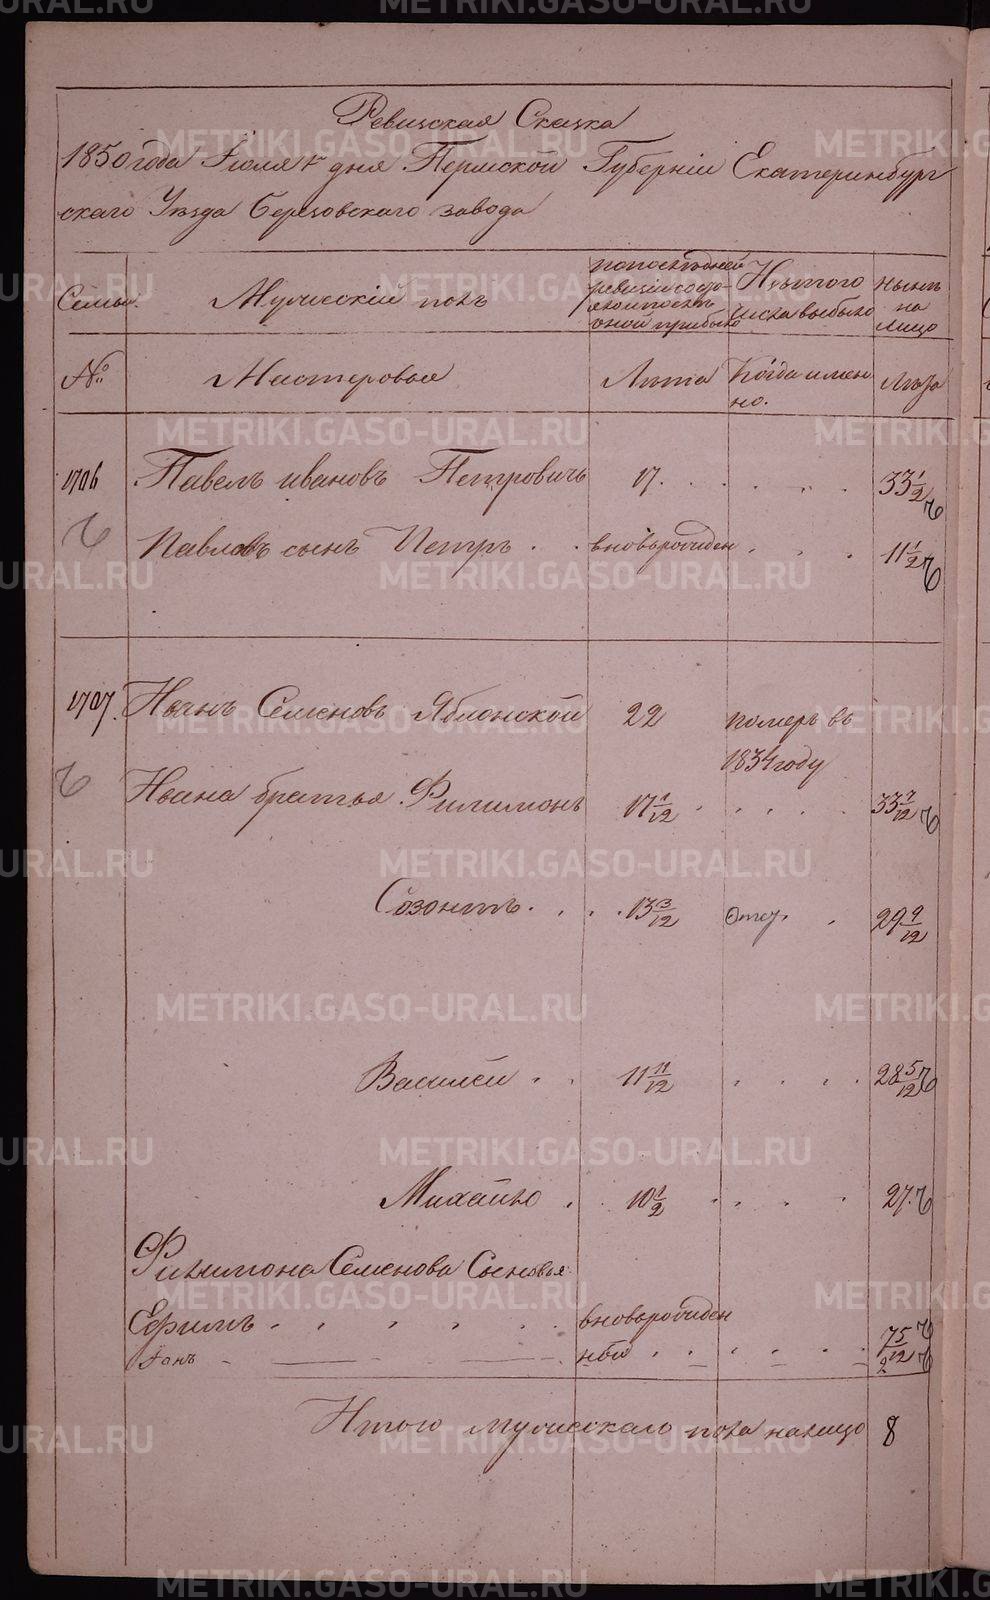 Ревизская Сказка
1850 года Июля 1 дня Пермской Губерніи Екатеринбург
скаго Уѣзда Березовскаго завода
Семьи. Мужескій полъ попослѣдней ревизіи состояло и послѣ оной прибыло Изътого числа выбыло Нынѣ на лицо
№ Мастеровые Лѣта Когда имен но. Лѣта
1706 Павелъ Ивановъ Петровичь 17. 33 1/2
Павловъ сынъ Петръ вновьрожден 11 1/2
1707. Иванъ Семеновъ Яблонской 22 померъ въ
1834 году
Ивана братья Филимонъ 17 1/12 33 7/12
Созонтъ 13 3/12 Отсу. 29 9/12
Василей 11 11/12 28 5/12
Михайло 10 1/2 27.
Филимона Семенова Сыновья
Ефимъ вновьрожден 7 5/12
Іонъ ные 2
Итого мужескаго пола налицо 8
METRIKI.GASO-URAL.RU